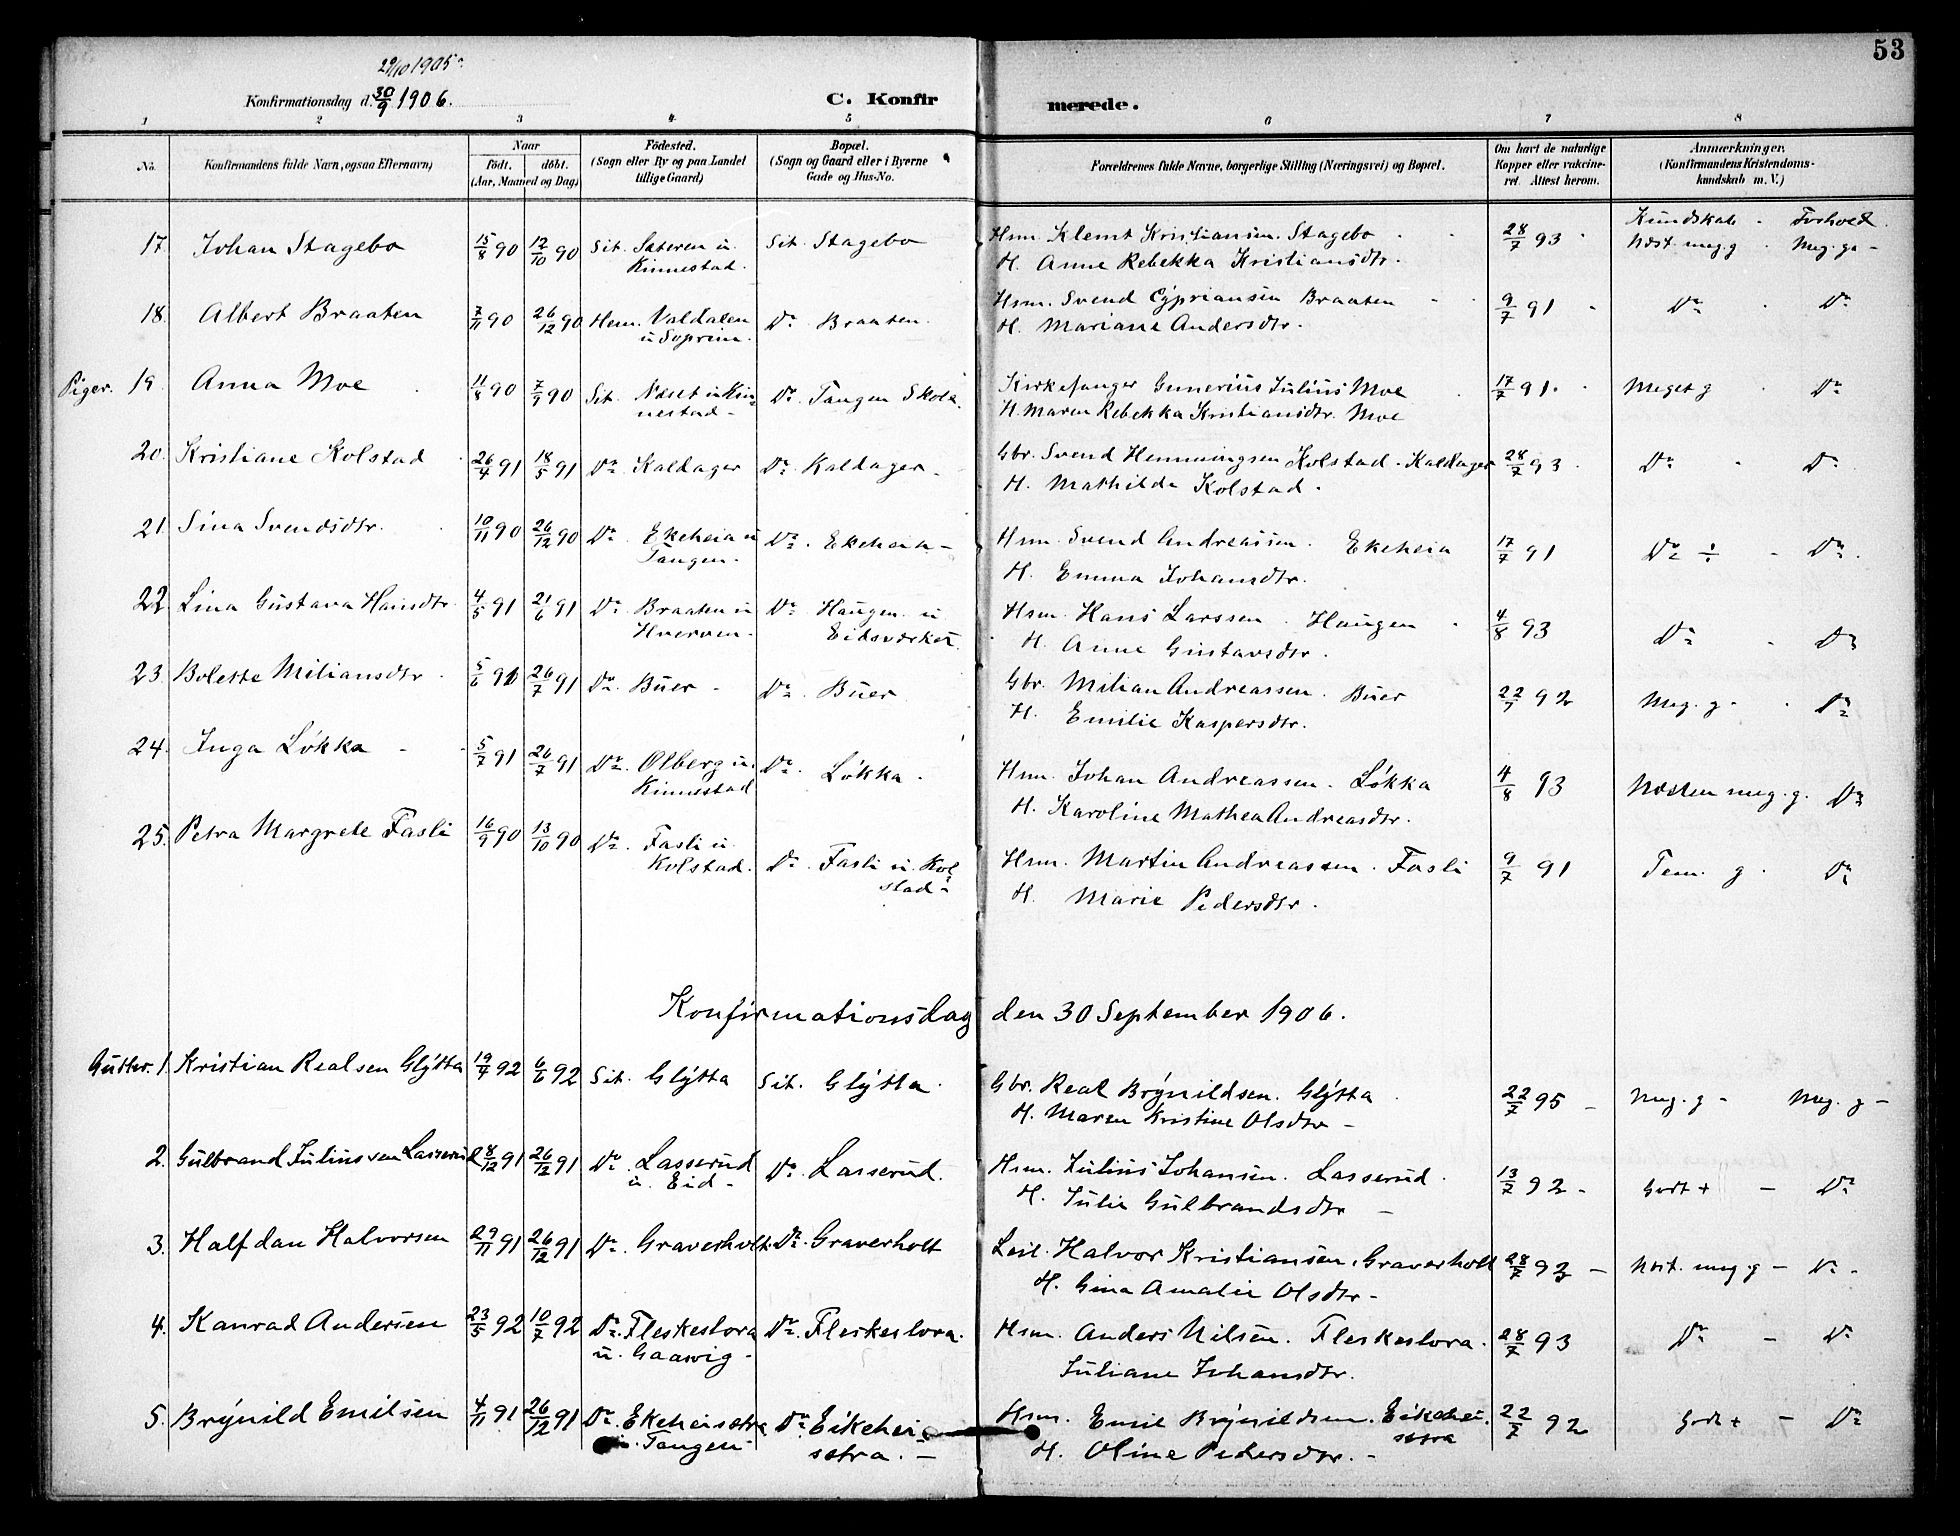 53
29/10 1905
Konfirmationsdag d. 30/9 1906.
C. Konfirmerede.
1 2 3 4 5 6 7 8
No. Konfirmandens fulde Navn, ogsaa Efternavn) Naar født. døbt. (Aar, Maaned og Dag) Fødested. (Sogn eller By og paa Landet tillige Gaard) Bopæl. (Sogn og Gaard eller i Byerne Gade og Hus-No. Forældrenes fulde Navne, borgerlige Stilling (Næringsvei) og Bopæl. Om havt de naturlige Kopper eller vakcineret. Attest herom. Anmærkninger. (Konfirmandens Kristendomskundskab m. V.)
Kundskab - Forhold.
17. Johan Stagebo 15/8 90 12/10 90 Sit. Sæteren u. Kinnestad. Sit. Stagebo Hsm. Klemt Kristiansen. Stagebo 28/7 93 Næst. meg. g. Meg. g. -
H. Anne Rebekka Kristiansdtr.
18. Albert Braaten 7/11 90 26/12 90 Hem. Valdalen u Soprim. Do. Braaten. Hsm. Svend Cyprianssen Braaten 9/7 91 Do Do
H. Mariane Andersdtr.
Piger. 19. Anna Moe 11/8 90 7/9 90 Sit. Næset u Kinnestad - Do. Tangen Skole. Kirkesanger Gunerius Julius Moe 17/7 91. Meget g Do
H. Maren Rebekka Kristiansdtr. Moe
20. Kristiane Kolstad 26/4 91 18/5 91 Do Kaldager Do. Kaldager - Gbr. Svend Henningsen Kolstad - Kaldager 28/7 93 Do Do
H. Mathilde Kolstad.
21. Sina Svendsdtr. 10/11 90 26/12 90 Do Ekeheia u Tangen. Do. Ekeheia - Hsm. Svend Andreassen. Ekeheia 17/7 91 Do ÷ - Do.
H. Emma Johansdtr.
22. Lina Gustava Hansdtr. 4/5 91 21/6 91 Do Braaten u Hverven - Do Haugen u Eidsverket. Hsm. Hans Larssen. Haugen 4/8 93 Do - Do
H. Anne Gustavsdtr.
23. Bolette Miliansdtr. 5/6 91 26/7 91 Do. Buer - Do. Buer Gbr. Milian Andreassen. Buer 22/7 92 Meg. g - Do
H. Emilie Kaspersdtr.
24. Inga Løkka - 5/7 91 26/7 91 Do. Olberg u. Kinnestad Do. Løkka. Hsm. Johan Andreassen. Løkka 4/8 93 Næsten meg. g. Do
H. Karoline Mathea Andreasdtr.
25. Petra Margrete Fasli 16/9 90 13/10 90 Do. Fasli u. Kolstad. Do. Fasli u. Kolstad - Hsm. Martin Andreassen. Fasli 9/7 91 Tem. g. Do
H. Marie Pedersdtr.
Konfirmationsdag den 30 September 1906.
Gutter. 1. Kristian Realsen Glytta 19/4 92 6/6 92 Sit. Glytta Sit. Glytta. Gbr. Real Brynildsen. Glytta 22/7 95 - Meg. g - Meg. g -
H. Maren Kristine Olsdtr -
2. Gulbrand Juliussen Lasserud 8/12 91 26/12 91 Do. Lasserud u. Eid - Do. Lasserud. Hsm. Julius Johansen. Lasserud. 13/7 92 - Godt + - Do
H. Julie Gulbrandsdtr -
3. Halfdan Halvorsen 29/11 91 26/12 91 Do. Graverholt. Do. Graverholt Leil. Halvor Kristiansen. Graverholt 28/7 93 - Næst. meg. g - Do -
H. Gina Amalie Olsdtr -
4. Konrad Andersen 23/5 92 10/7 92 Do. Fleskestora u. Gaasvig - Do. Fleskestora. Hsm. Anders Nilsen. Fleskestora. 28/7 93 Do - Do
Juliane Johansdtr.
5. Brynild Emilsen 4/11 91 26/12 91 Do. Ekeheisætra u. Tangen Do. Eikeheisætra. - Hsm. Emil Brynildsen. Eikeheisætra 22/7 92 Godt + - Do
H. Oline Pedersdtr. -